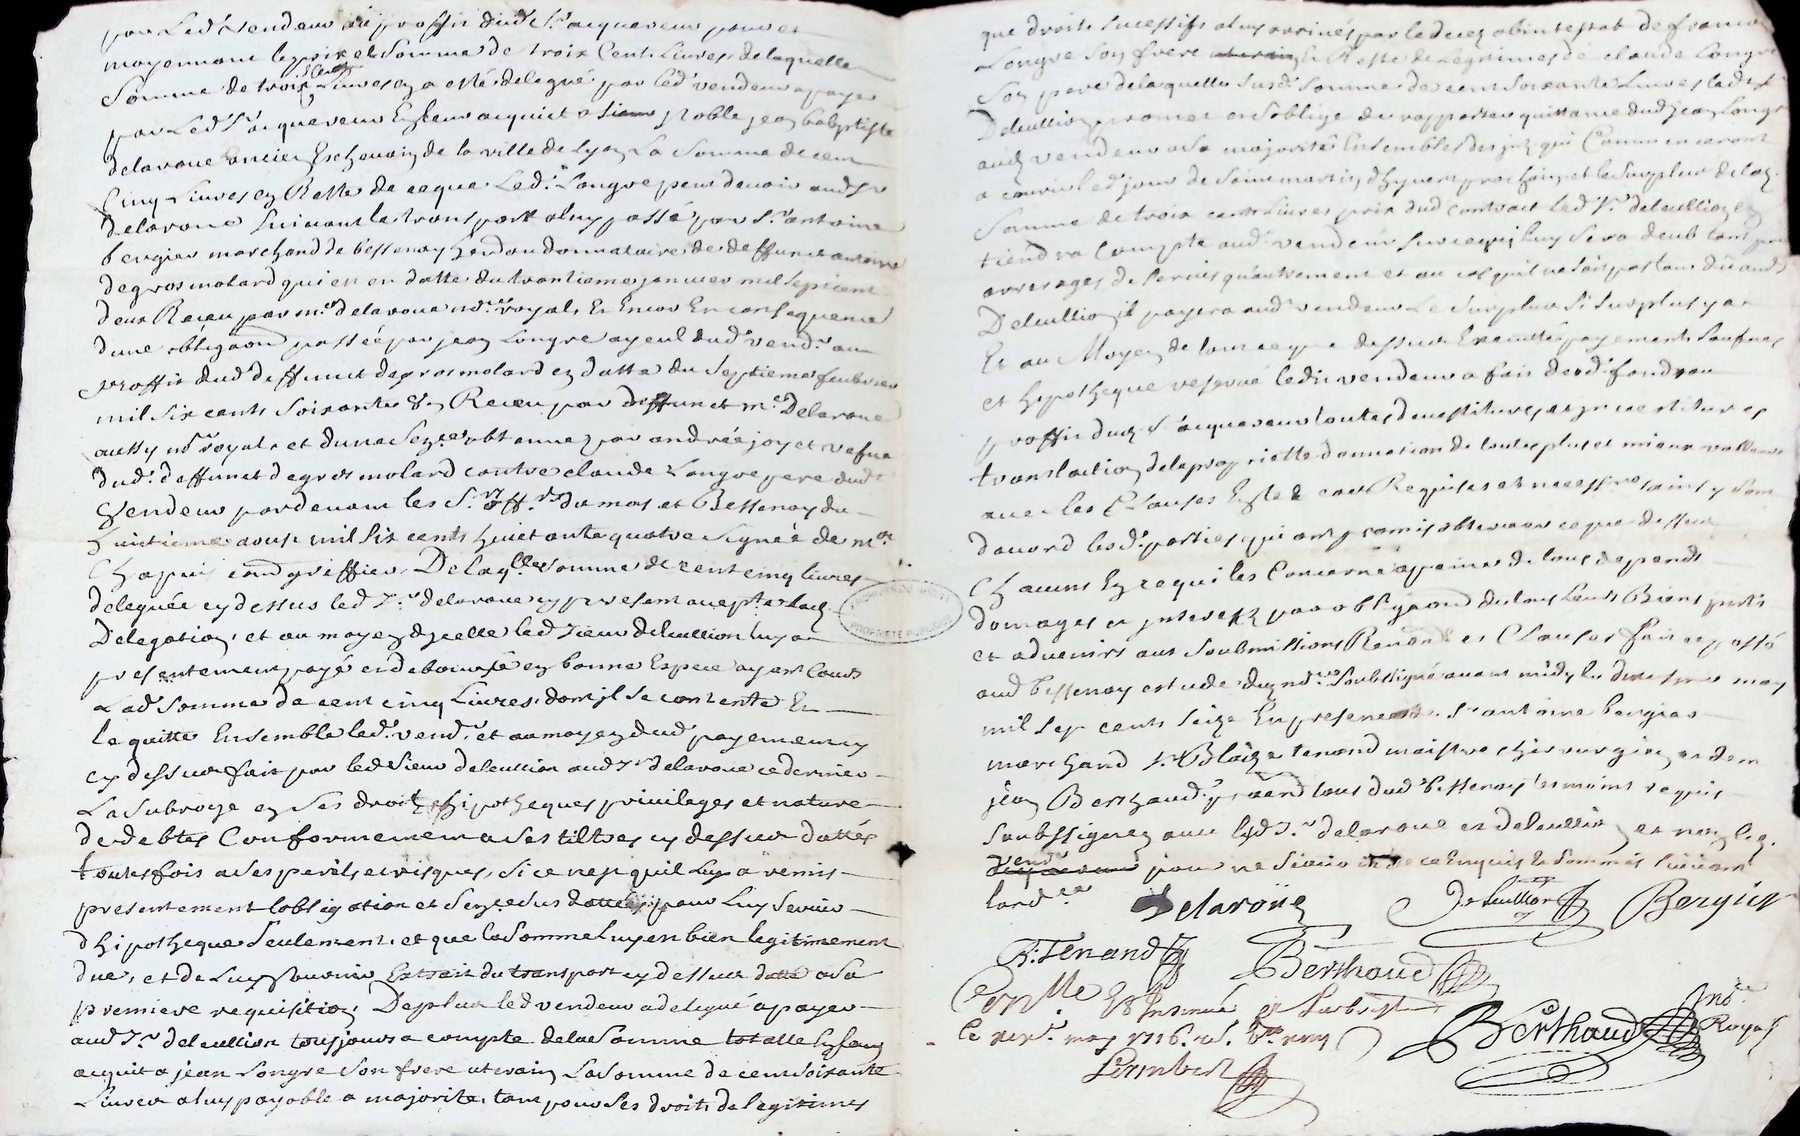 par Led. Vendeur au proffit dud. Sr. acquereur pour et
moyennant le prix et Somme de trois Cents Livres de laquelle
Somme de trois Cents Livres en a esté delegué par led. vendeur a payer
par Led. Sr. acquereur En leur acquict a Noble jean baptiste
delaroue ancien Eschevain de la ville de Lyon La Somme de cent
Cinq Livres en Reste de ce que Led. Longre peut devoir aud. Sr.
delaroue Suivant le transport a luy passé par Sr. antoine
bergier marchand de bessenay her. ou donnataire de deffunct antoine
degrosmolard qui est en datte du trantieme janvier mil Sept cent
deux Receu par me. delaroue nore. royal, Et Encor En consequence
dune obligaon passée par jean Longre ayeul dud. vendr. au
proffit dud. deffunct degrosmolard en datte du Septieme feubvrier
mil Six cents Soixante Receu par deffunct me. Delaroue
aussy nore. royal, et dune Senze. obtenue par andrée joy et vefue
dud. deffunct degrosmolard contre claude Longre pere dud.
Vendeur pardevant les Srs. offrs. du mas et Bessenay du
huictieme aoust mil Six cents huictante quatre Signée de me.
Chapuis greffier. De laqlle. Somme de cent cinq livres
deleguée cy dessus led. Sr. delaroue cy present accepte. lad.
Delegation, et au moyen dycelle led. Sieur deleullion luy a
presentement payé et deboursé en bonne Espece ayant Cours
Lad. Somme de cent cinq Livres, dont jl Se contente Et
le quitte Ensemble led. vendr. et au moyen dud. payement
cy dessus fait par led. Sieur deleullion aud. Sr. delaroue ce dernier
La Subroge en Ses droits, hipotheques privileges et nature
de debtes Conformement a Ses tiltres cy dessus dattés
toutesfois a Ses perils et risques, Si ce nest quil Luy a remis
presentement lobligation et Senze. Sus dattée pour Luy Servir
dhipotheque Seulement, et que la Somme Luy est bien legitimement
due, et de Luy fournir Extrait du transport cy dessus datté a Sa
premiere requisition, De plus led. vendeur a delegué a payer
aud. Sr. deleullion tousjours a compte de la Somme totalle En Son
acquit a jean Longre Son frere uterain La Somme de cent Soixante
Livres a luy payable a majorité, tant pour Ses droits de legitimes
que droits Sucessifs a luy arrivés par le decez abintestat de francois
Longre Son frere Reste de Legitimes de claude Longre
Son pere de laquelle Susd. Somme de cent Soixante Livres led. Sr.
Deleullion promet et Soblige de rapporter quittance dud. jean Longre
aud. vendeur a Sa majorité Ensemble des jnterests qui Commenceront
a courir led. jour de Saint martin dhyvert prochain, et le Surplus de lad.
Somme de trois cents Livres prix dud. contract led. Sr. deleullion en
tiendra Compte aud. vendeur Sur ce qui luy Sera deub tant pour
arrerages de Servis quautrement et au cas quil ne Soit pas tant dû aud. Sr.
Deleullion jl payera aud. vendeur Le Surplus Si Surplus y a
Et au Moyen de tout ce que dessus Executté payements Saufuer
et hipotheque reservé led. vendeur a fait aud. fond au
proffit dud. Sr. acquereur toutes devestitures et jnvestitures
translation de la propriette donnation de toutes plus et mieux vallence
avec les Clauses En tel cas Requises et necessres. ainsy Sont
dacord lesd. parties qui ont promis observer ce que dessus
Chacune En ce qui les Concerne a peine de tous depends
domages et jnterestz par obligaon de tous Leurs Biens pnts.
et advenirs aux Soubmissions Renonc. et Clauses fait et passé
aud. bessenay estude du nore. Soubsigné avant midy le mary
mil Sept cents Seize En presence de Sr. antoine bergier
marchand Sr. Blaize tenand maistre chirurgien et de me.
jean Berthaud prend. tous dud. bessenay tesmoins requis
Soubssignez avec led. Sr. delaroue et deleullion et non led.
vendr. pour ne Sçavoir de ce Enquis Et Sommés Suivant
lord.ce
Delaroüe DeLeullion Bergier
B. Tenand Berthaud
Controllé & Insinué a Larbresle
le may 1716. rl.
Lrimbert
Berthaud nore. Royal